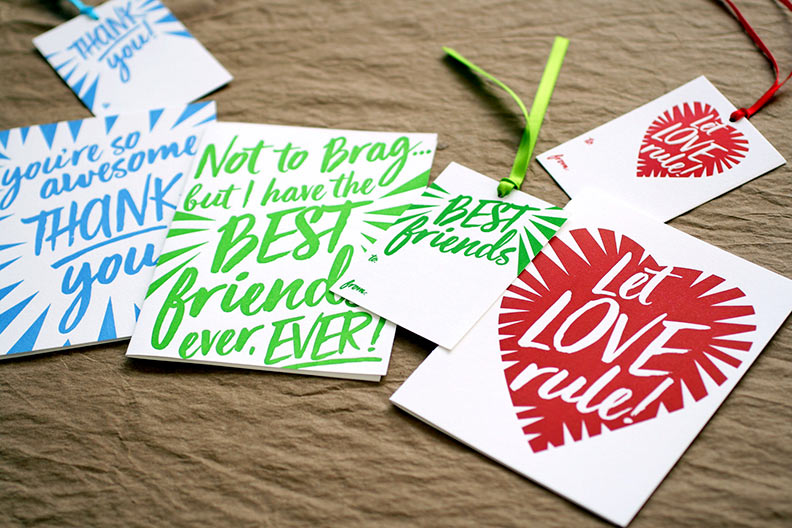 THANK
you!
you're so
awesome
THANK
you
Not to Brag...
but I have the
BEST
friends
ever, EVER!
BEST
friends
to:
from:
Let
LOVE
rule!
to:
from:
Let
LOVE
rule!